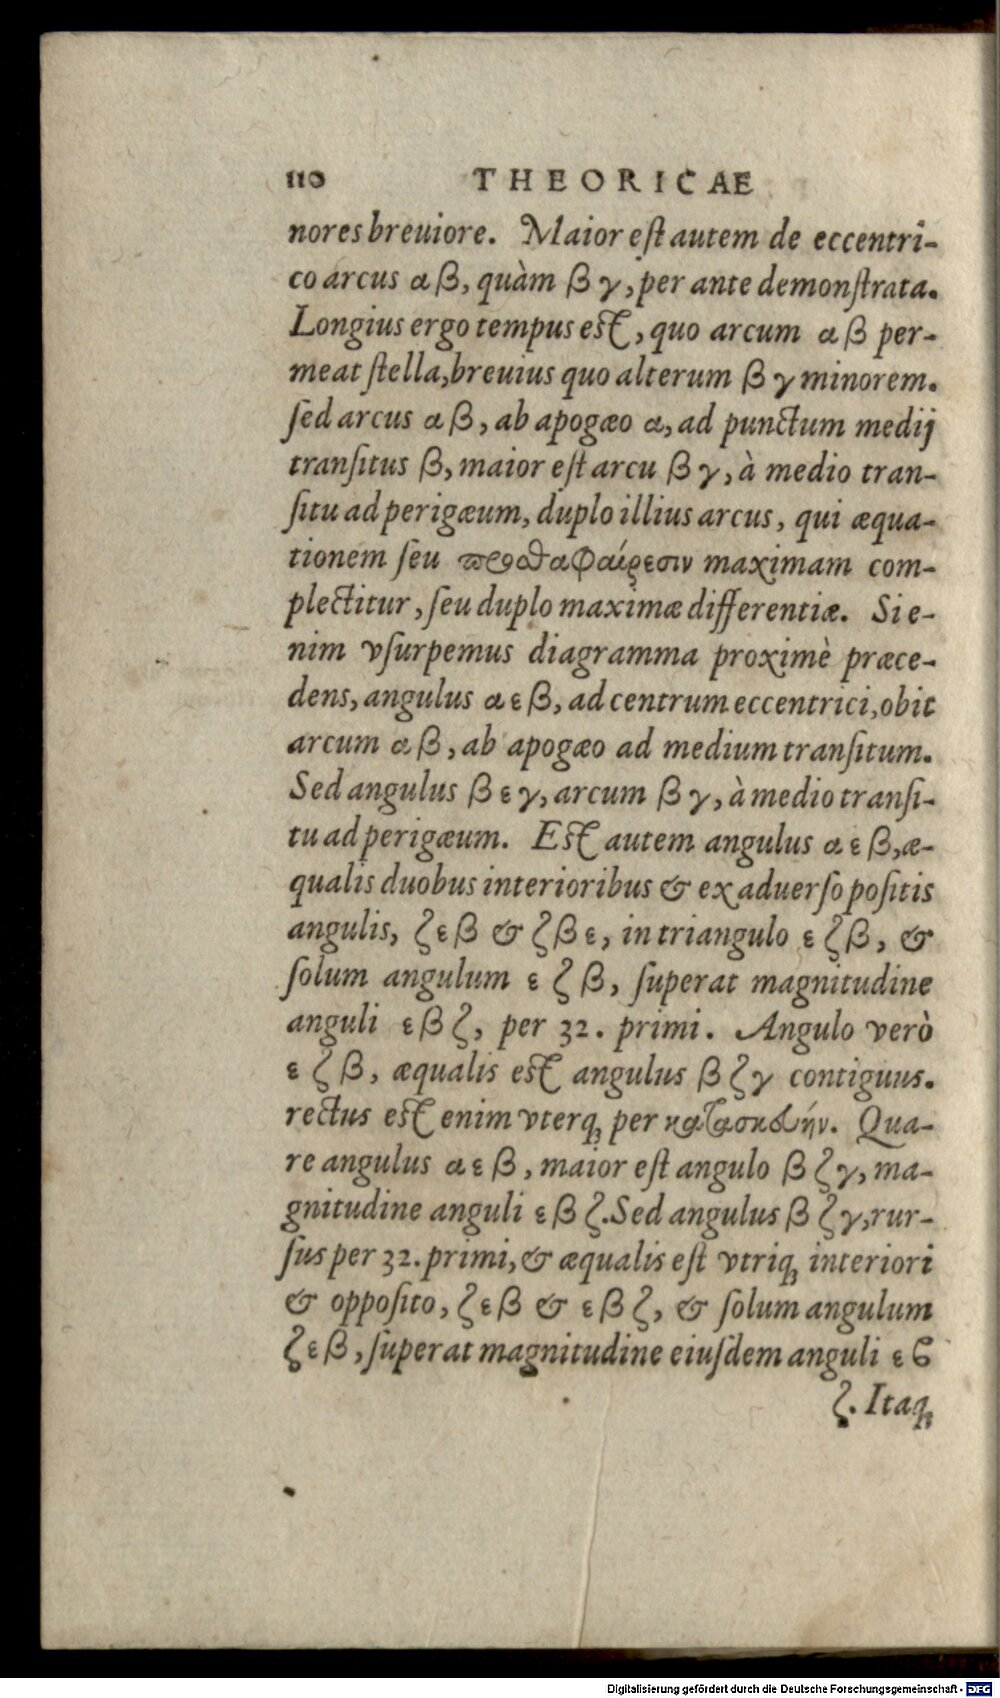 110 THEORICAE
nores breuiore. Maior eſt autem de eccentri-
co arcus α β, quàm β γ, per ante demonſtrata.
Longius ergo tempus eſt, quo arcum α β per-
meat ſtella, breuius quo alterum β γ minorem.
ſed arcus α β, ab apogæo α, ad punctum medij
tranſitus β, maior eſt arcu β γ, à medio tran-
ſitu ad perigæum, duplo illius arcus, qui æqua-
tionem ſeu προσθαφαίρεσιν maximam com-
plectitur, ſeu duplo maximæ differentiæ. Si e-
nim vſurpemus diagramma proximè præce-
dens, angulus α ε β, ad centrum eccentrici, obit
arcum α β, ab apogæo ad medium tranſitum.
Sed angulus β ε γ, arcum β γ, à medio tranſi-
tu ad perigæum. Eſt autem angulus α ε β, æ-
qualis duobus interioribus & ex aduerſo poſitis
angulis, ζ ε β & ζ β ε, in triangulo ε ζ β, &
ſolum angulum ε ζ β, ſuperat magnitudine
anguli ε β ζ, per 32. primi. Angulo verò
ε ζ β, æqualis eſt angulus β ζ γ contiguus.
rectus eſt enim vterq; per κατασκευήν. Qua-
re angulus α ε β, maior eſt angulo β ζ γ, ma-
gnitudine anguli ε β ζ. Sed angulus β ζ γ, rur-
ſus per 32. primi, & æqualis eſt vtriq; interiori
& oppoſito, ζ ε β & ε β ζ, & ſolum angulum
ζ ε β, ſuperat magnitudine eiuſdem anguli ε ϐ
ζ. Itaq;
Digitalisierung gefördert durch die Deutsche Forschungsgemeinschaft - DFG